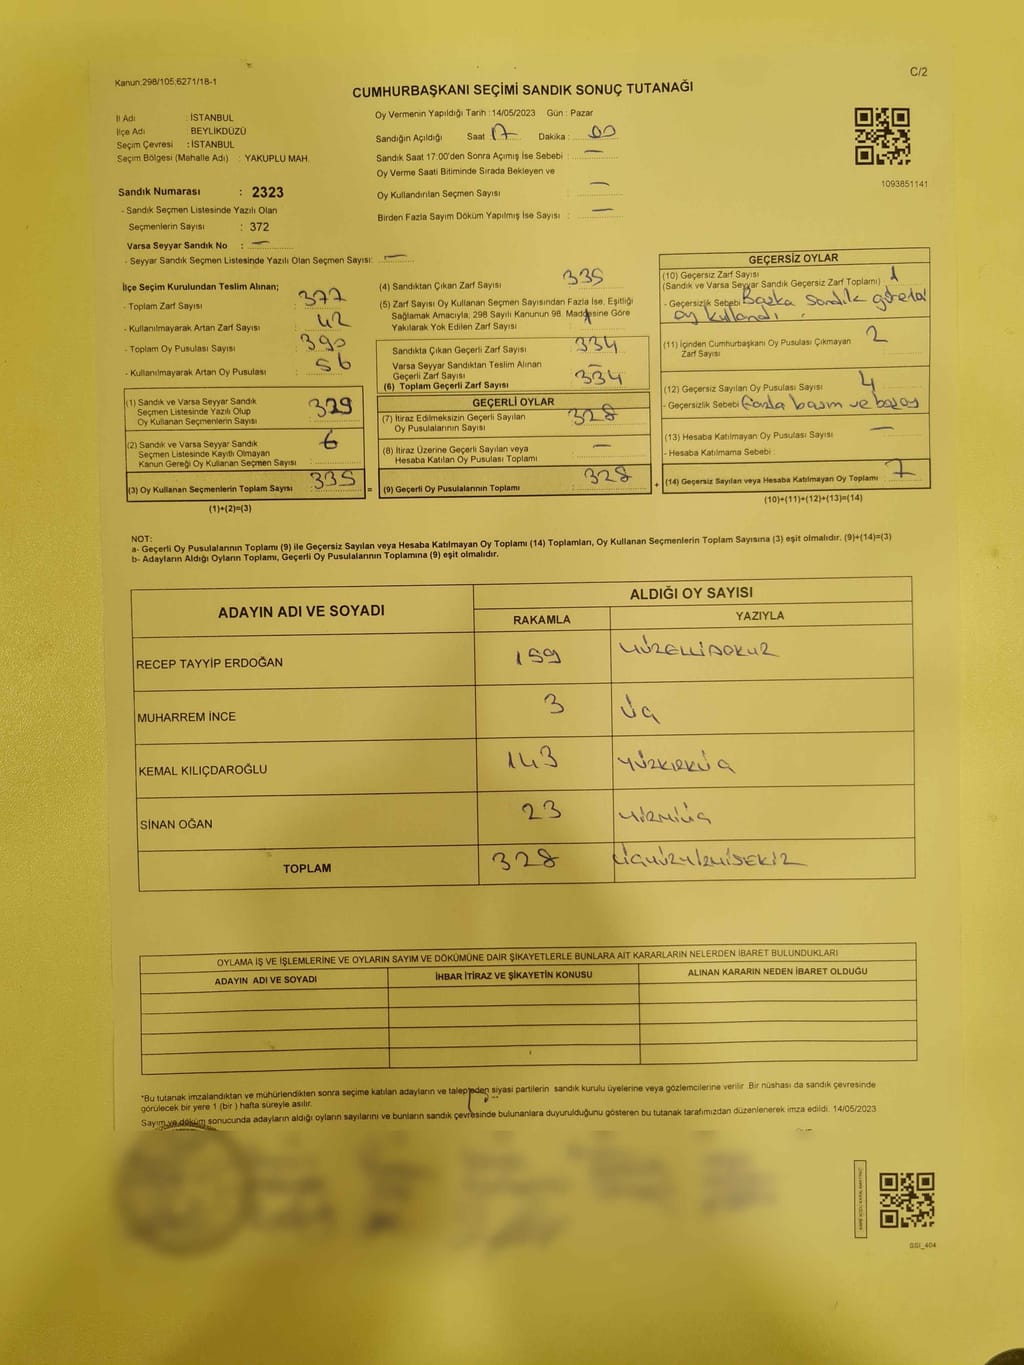 Kanun:298/105;6271/18-1
C/2
CUMHURBAŞKANI SEÇİMİ SANDIK SONUÇ TUTANAĞI
İl Adı : İSTANBUL
İlçe Adı : BEYLİKDÜZÜ
Seçim Çevresi : İSTANBUL
Seçim Bölgesi (Mahalle Adı) : YAKUPLU MAH.
Sandık Numarası : 2323
- Sandık Seçmen Listesinde Yazılı Olan
Seçmenlerin Sayısı : 372
Varsa Seyyar Sandık No : —
- Seyyar Sandık Seçmen Listesinde Yazılı Olan Seçmen Sayısı: —
Oy Vermenin Yapıldığı Tarih : 14/05/2023 Gün : Pazar
Sandığın Açıldığı Saat : 17 Dakika : 00
Sandık Saat 17:00'den Sonra Açımış İse Sebebi : —
Oy Verme Saati Bitiminde Sırada Bekleyen ve
Oy Kullandırılan Seçmen Sayısı : —
Birden Fazla Sayım Döküm Yapılmış İse Sayısı : —
1093851141
İlçe Seçim Kurulundan Teslim Alınan;
- Toplam Zarf Sayısı : 377
- Kullanılmayarak Artan Zarf Sayısı : 42
- Toplam Oy Pusulası Sayısı : 390
- Kullanılmayarak Artan Oy Pusulası : 56
(1) Sandık ve Varsa Seyyar Sandık
Seçmen Listesinde Yazılı Olup
Oy Kullanan Seçmenlerin Sayısı : 329
(2) Sandık ve Varsa Seyyar Sandık
Seçmen Listesinde Kayıtlı Olmayan
Kanun Gereği Oy Kullanan Seçmen Sayısı : 6
(3) Oy Kullanan Seçmenlerin Toplam Sayısı : 335
(1)+(2)=(3)
(4) Sandıktan Çıkan Zarf Sayısı : 335
(5) Zarf Sayısı Oy Kullanan Seçmen Sayısından Fazla İse, Eşitliği
Sağlamak Amacıyla; 298 Sayılı Kanunun 98. Maddesine Göre
Yakılarak Yok Edilen Zarf Sayısı :
Sandıkta Çıkan Geçerli Zarf Sayısı : 334
Varsa Seyyar Sandıktan Teslim Alınan
Geçerli Zarf Sayısı :
(6) Toplam Geçerli Zarf Sayısı : 334
GEÇERLİ OYLAR
(7) İtiraz Edilmeksizin Geçerli Sayılan
Oy Pusulalarının Sayısı : 328
(8) İtiraz Üzerine Geçerli Sayılan veya
Hesaba Katılan Oy Pusulası Toplamı : —
= (9) Geçerli Oy Pusulalarının Toplamı : 328
GEÇERSİZ OYLAR
(10) Geçersiz Zarf Sayısı
(Sandık ve Varsa Seyyar Sandık Geçersiz Zarf Toplamı) : 1
- Geçersizlik Sebebi : Başka sandık görevlisi
oy kullandı.
(11) İçinden Cumhurbaşkanı Oy Pusulası Çıkmayan
Zarf Sayısı : 2
(12) Geçersiz Sayılan Oy Pusulası Sayısı : 4
- Geçersizlik Sebebi : Fazla basım ve
(13) Hesaba Katılmayan Oy Pusulası Sayısı : —
- Hesaba Katılmama Sebebi :
+ (14) Geçersiz Sayılan veya Hesaba Katılmayan Oy Toplamı : 7
(10)+(11)+(12)+(13)=(14)
NOT:
a- Geçerli Oy Pusulalarının Toplamı (9) ile Geçersiz Sayılan veya Hesaba Katılmayan Oy Toplamı (14) Toplamları, Oy Kullanan Seçmenlerin Toplam Sayısına (3) eşit olmalıdır. (9)+(14)=(3)
b- Adayların Aldığı Oyların Toplamı, Geçerli Oy Pusulalarının Toplamına (9) eşit olmalıdır.
ADAYIN ADI VE SOYADI
ALDIĞI OY SAYISI
RAKAMLA YAZIYLA
RECEP TAYYİP ERDOĞAN 159 YÜZELLİDOKUZ
MUHARREM İNCE 3 ÜÇ
KEMAL KILIÇDAROĞLU 143 YÜZKIRKÜÇ
SİNAN OĞAN 23 YİRMİÜÇ
TOPLAM 328 ÜÇYÜZYİRMİSEKİZ
OYLAMA İŞ VE İŞLEMLERİNE VE OYLARIN SAYIM VE DÖKÜMÜNE DAİR ŞİKAYETLERLE BUNLARA AİT KARARLARIN NELERDEN İBARET BULUNDUKLARI
ADAYIN ADI VE SOYADI İHBAR İTİRAZ VE ŞİKAYETİN KONUSU ALINAN KARARIN NEDEN İBARET OLDUĞU
*Bu tutanak imzalandıktan ve mühürlendikten sonra seçime katılan adayların ve talepteden siyasi partilerin sandık kurulu üyelerine veya gözlemcilerine verilir .Bir nüshası da sandık çevresinde
görülecek bir yere 1 (bir ) hafta süreyle asılır.
Sayım ve döküm sonucunda adayların aldığı oyların sayılarını ve bunların sandık çevresinde bulunanlara duyurulduğunu gösteren bu tutanak tarafımızdan düzenlenerek imza edildi. 14/05/2023
SSI_404